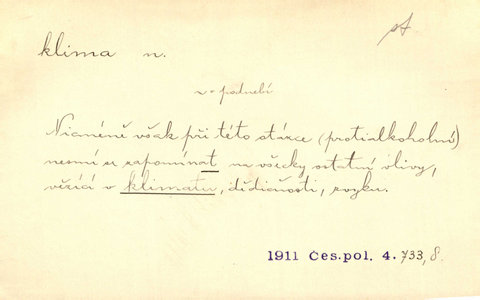 klima n.
= podnebí
Nicméně však při této otázce (protialkoholní)
nesmí se zapomínat na všecky ostatní vlivy,
vězící v klimatu, dědičnosti, zvyku.
1911 Čes.pol. 4. 733, 8.